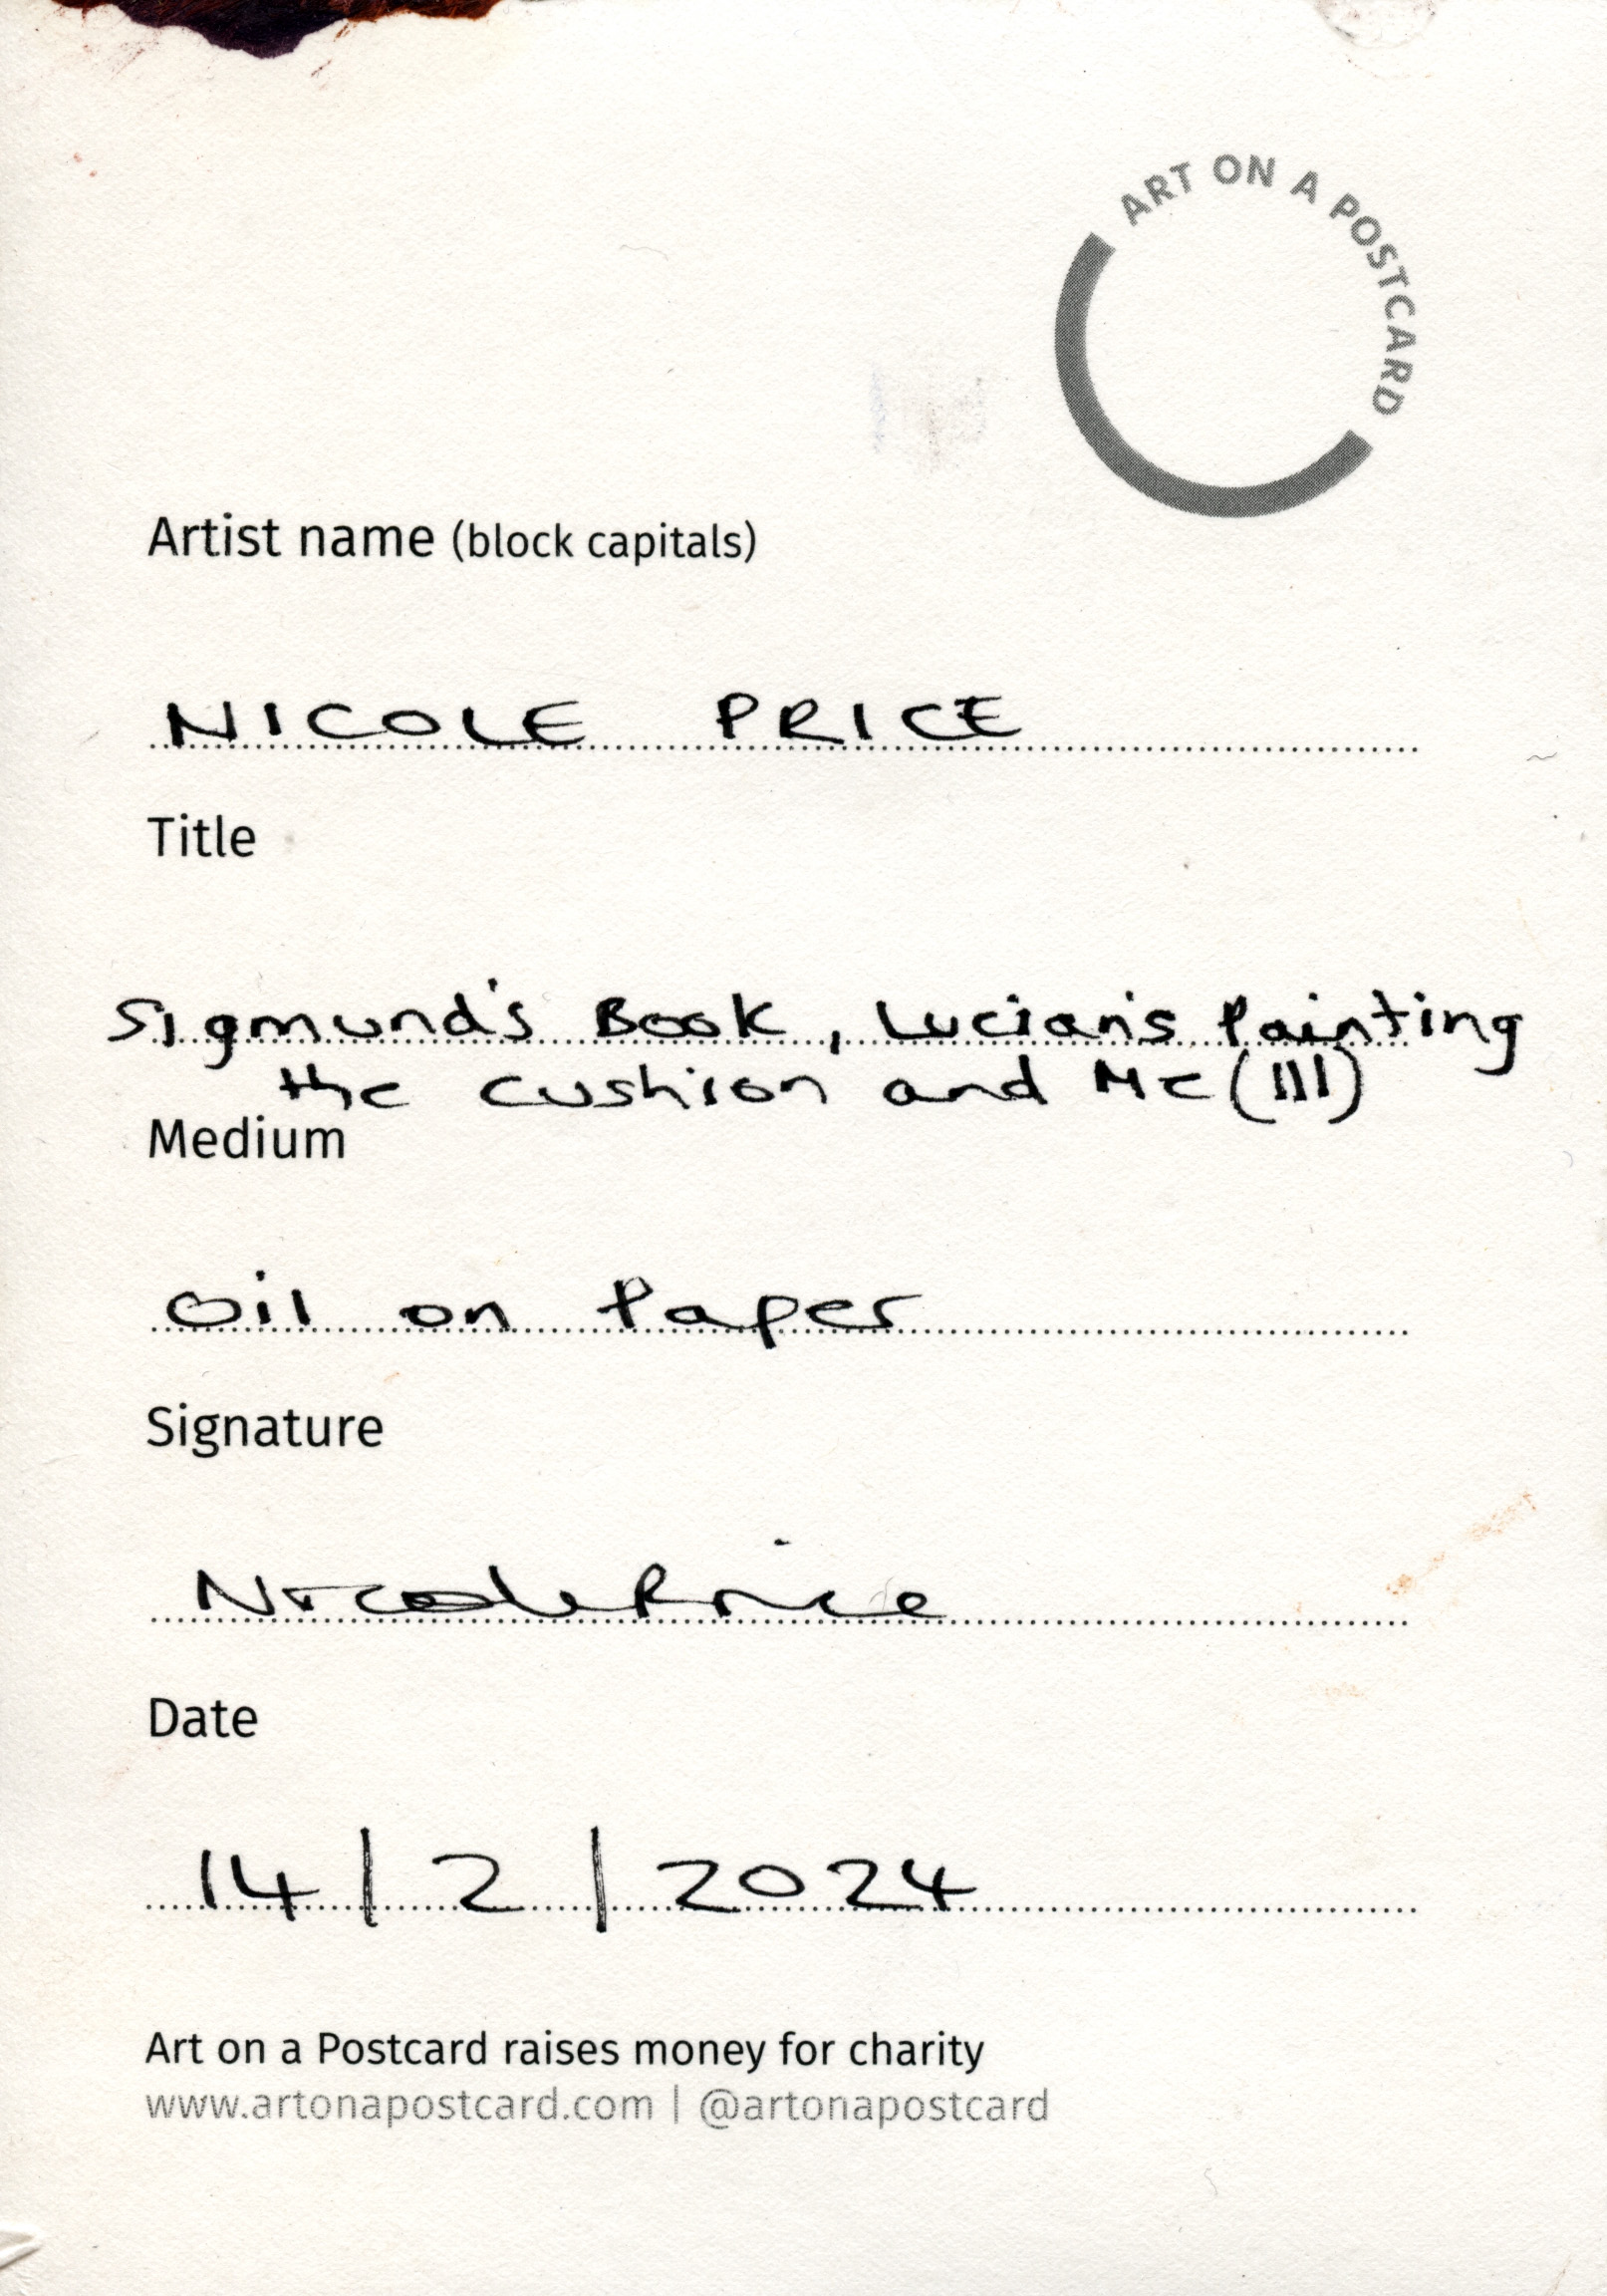 ART ON A POSTCARD
Artist name (block capitals)
NICOLE PRICE
Title
Sigmund's Book, Lucian's Painting
the cushion and Me (III)
Medium
Oil on Paper
Signature
Nicole Price
Date
14/2/2024
Art on a Postcard raises money for charity
www.artonapostcard.com | @artonapostcard